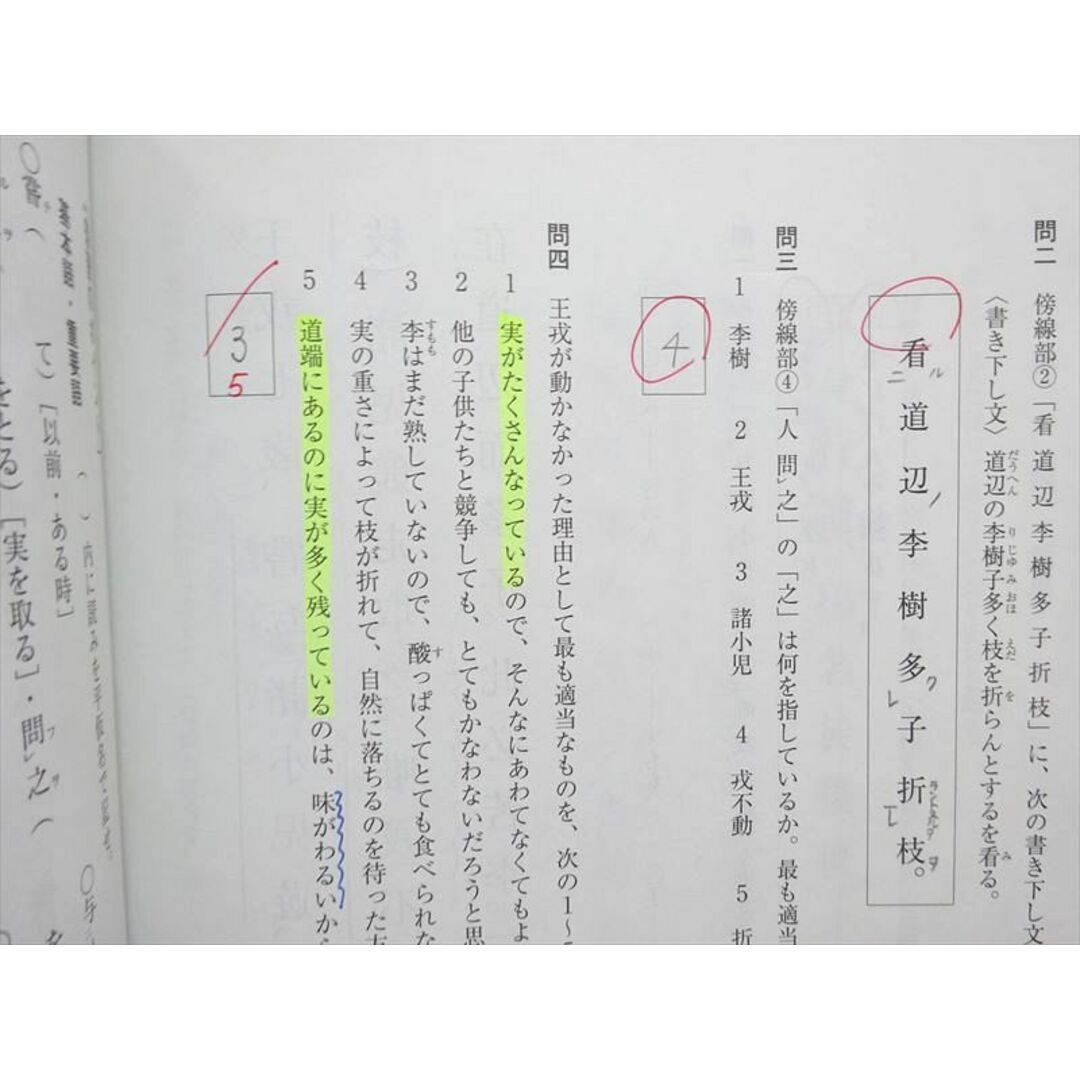 問二 傍線部②「看 道 辺 李 樹 多 子 折 枝」に、次の書き下し文
〈書き下し文〉道辺の李樹子多く枝を折らんとするを看る。
だうへん りじゆ み おほ えだ を み
看ル 道 辺ノ 李 樹 多ク 子 折ラントスルヲ 枝ヲ。
ニ レ 一
問三 傍線部④「人 問レ之」の「之」は何を指しているか。最も適当
1 李樹 2 王戎 3 諸小児 4 戎不動 5 折
4
問四 王戎が動かなかった理由として最も適当なものを、次の1～5
1 実がたくさんなっているので、そんなにあわてなくてもよ
2 他の子供たちと競争しても、とてもかなわないだろうと思
3 李はまだ熟していないので、酸っぱくてとても食べられな
すもも す
4 実の重さによって枝が折れて、自然に落ちるのを待った方
5 道端にあるのに実が多く残っているのは、味がわるいから
3
5
基本語・重要語
( )内に読みを平仮名で
て)［以前・ある時］
をとる)［実を取る］・問フレ之ヲ(